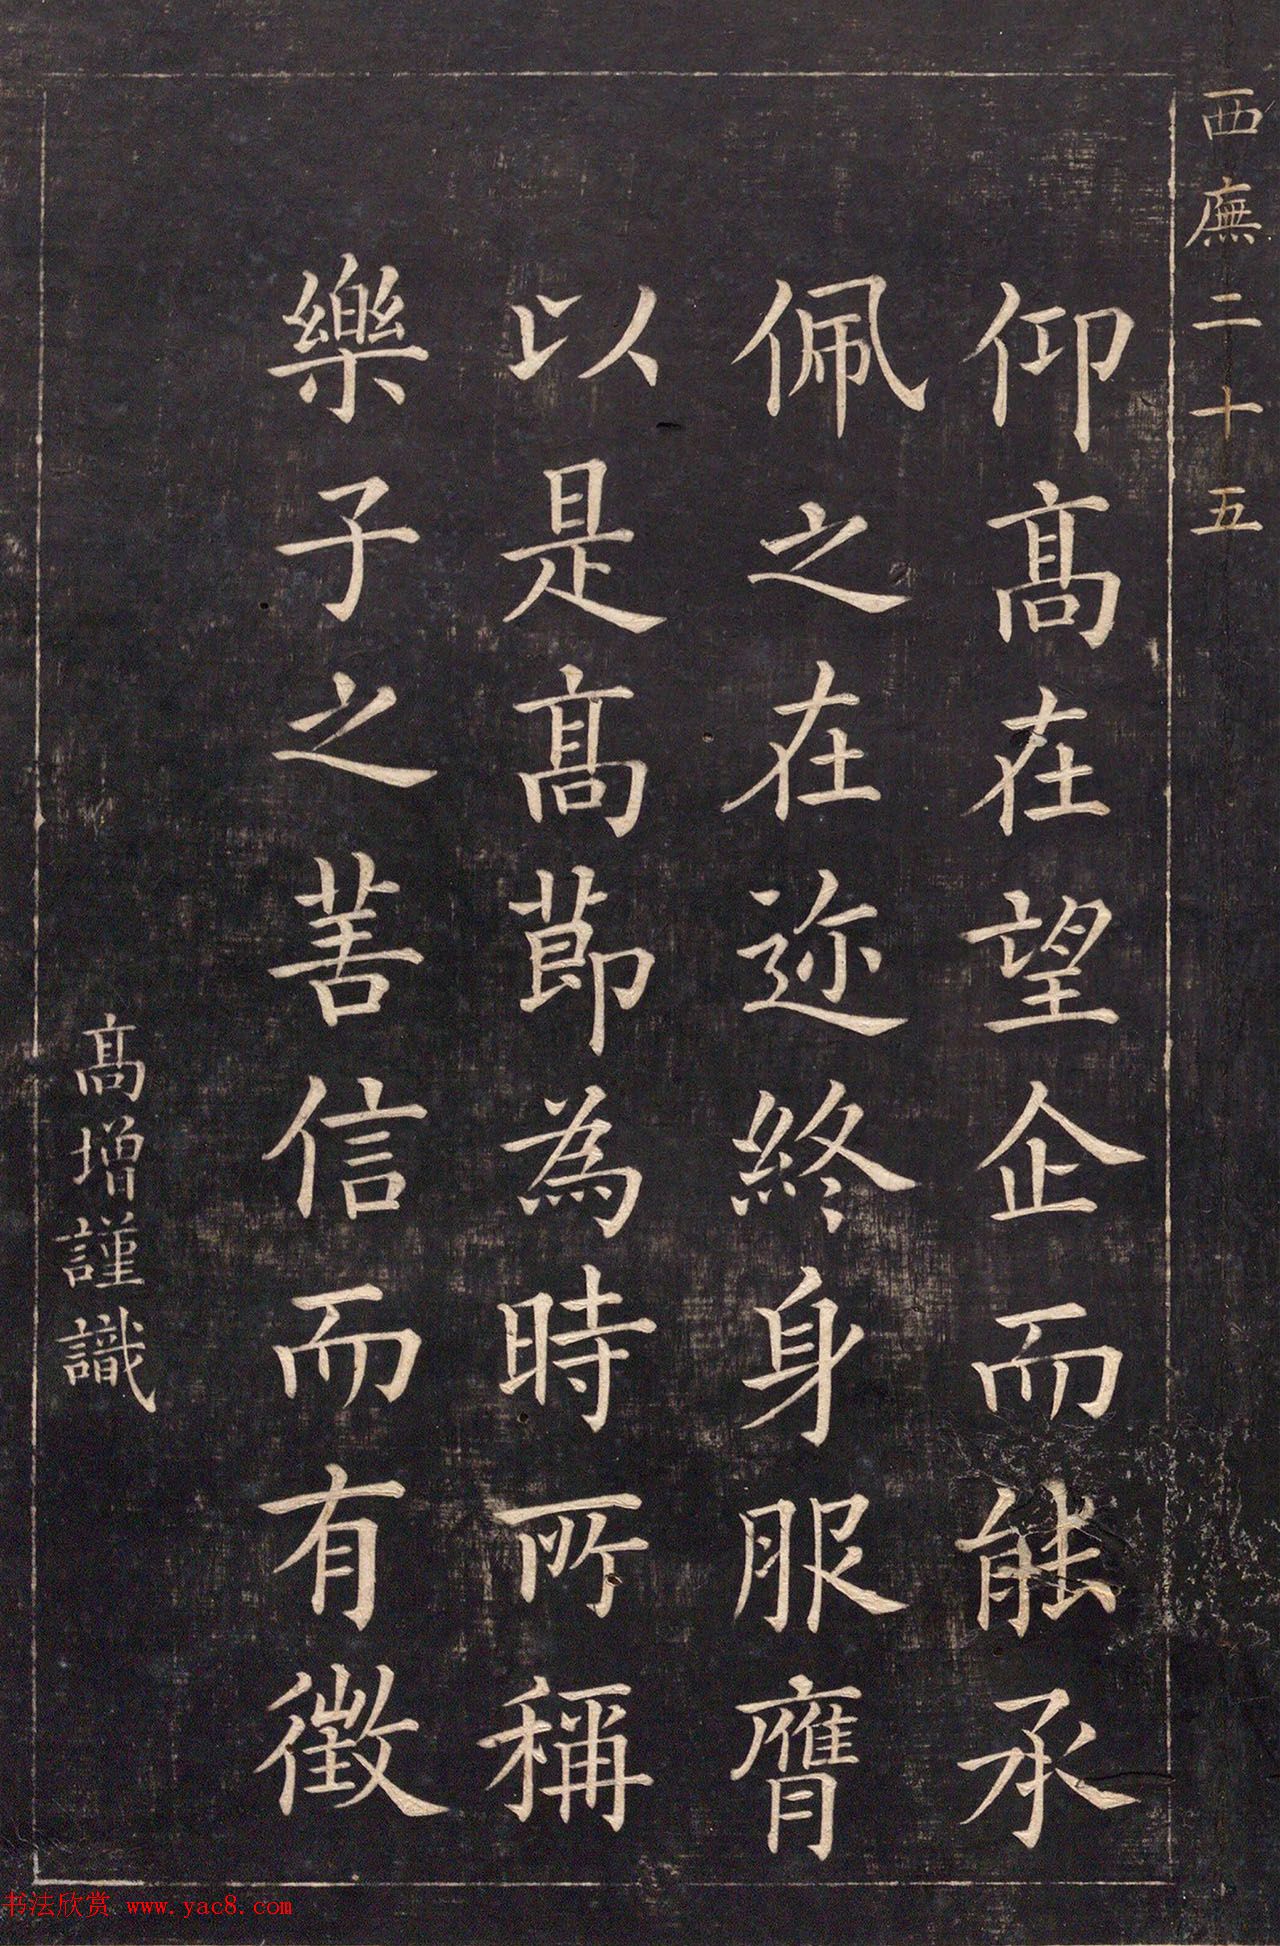 西廡二十五
仰髙在望企而能承
佩之在迩終身服膺
以是髙節為時所稱
樂子之善信而有徵
髙增謹識
书法欣赏 www.yac8.com